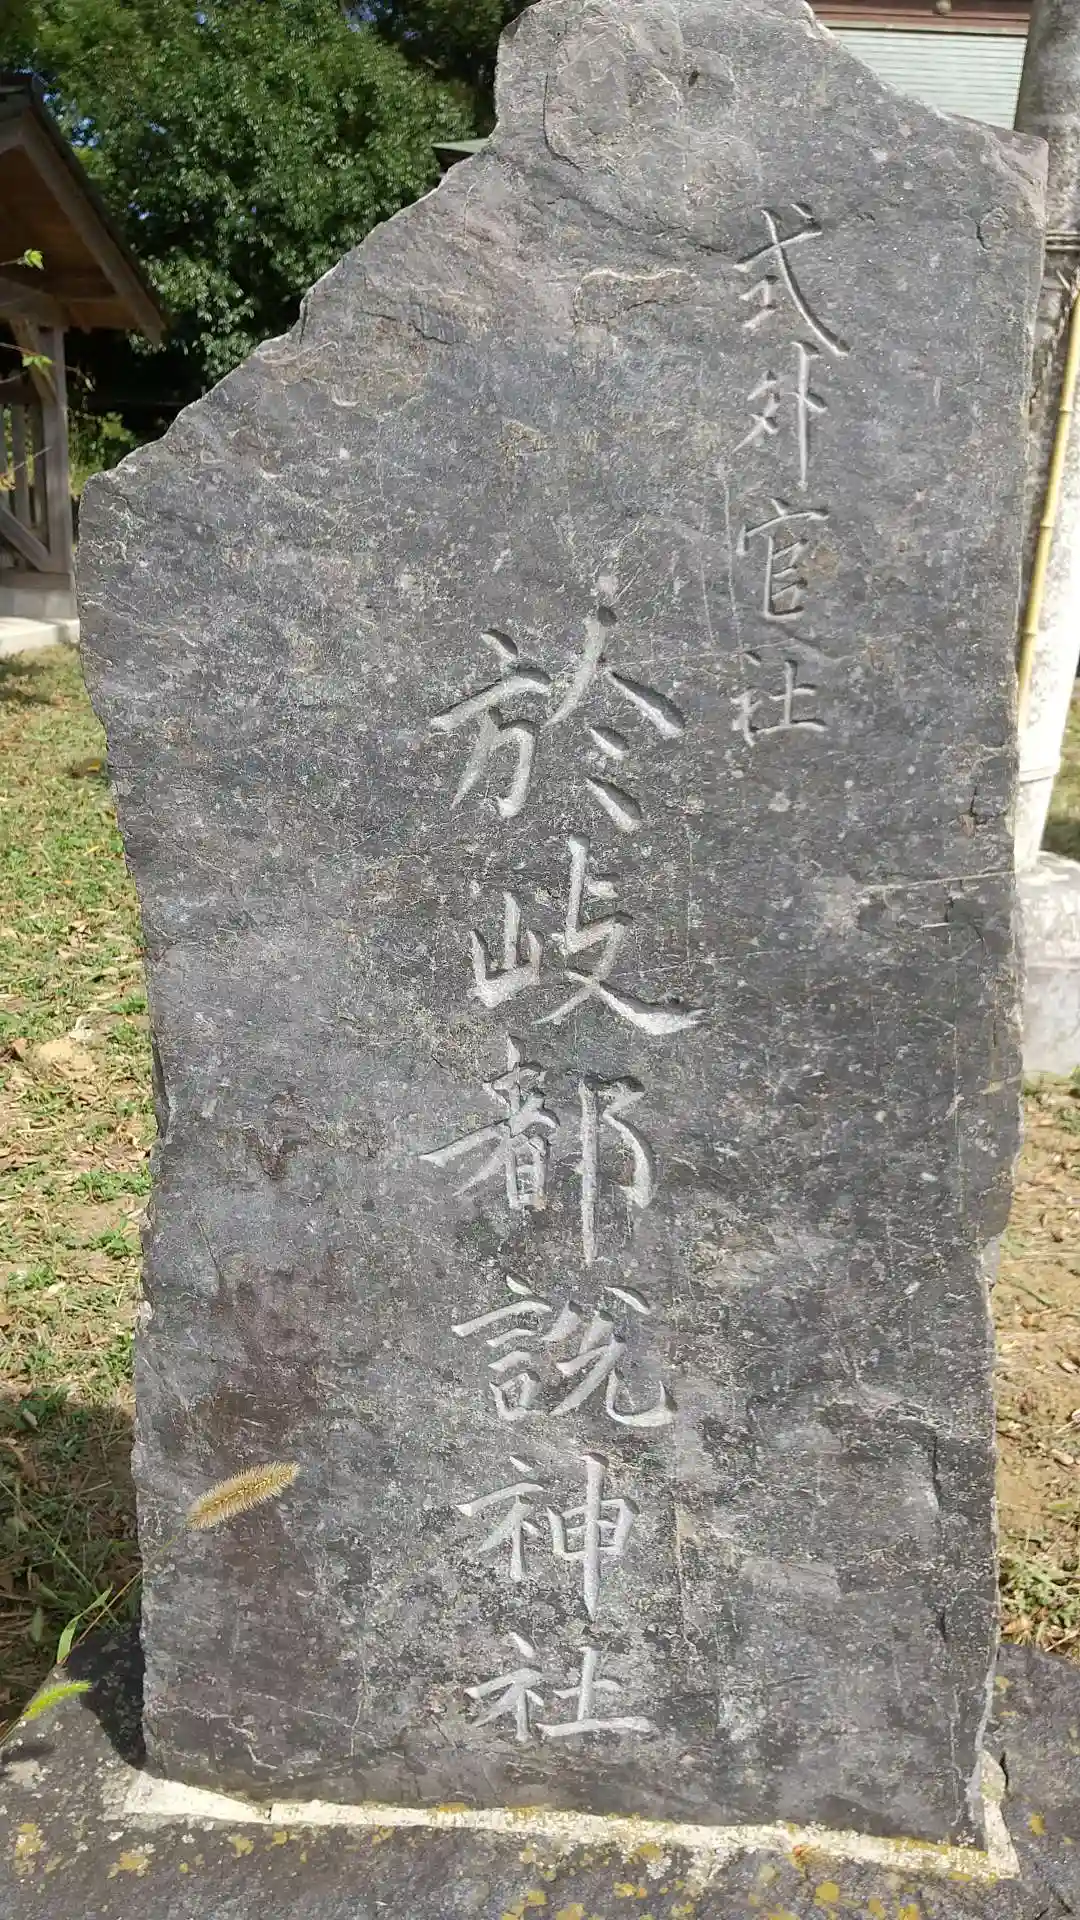 式外官社
於岐都説神社